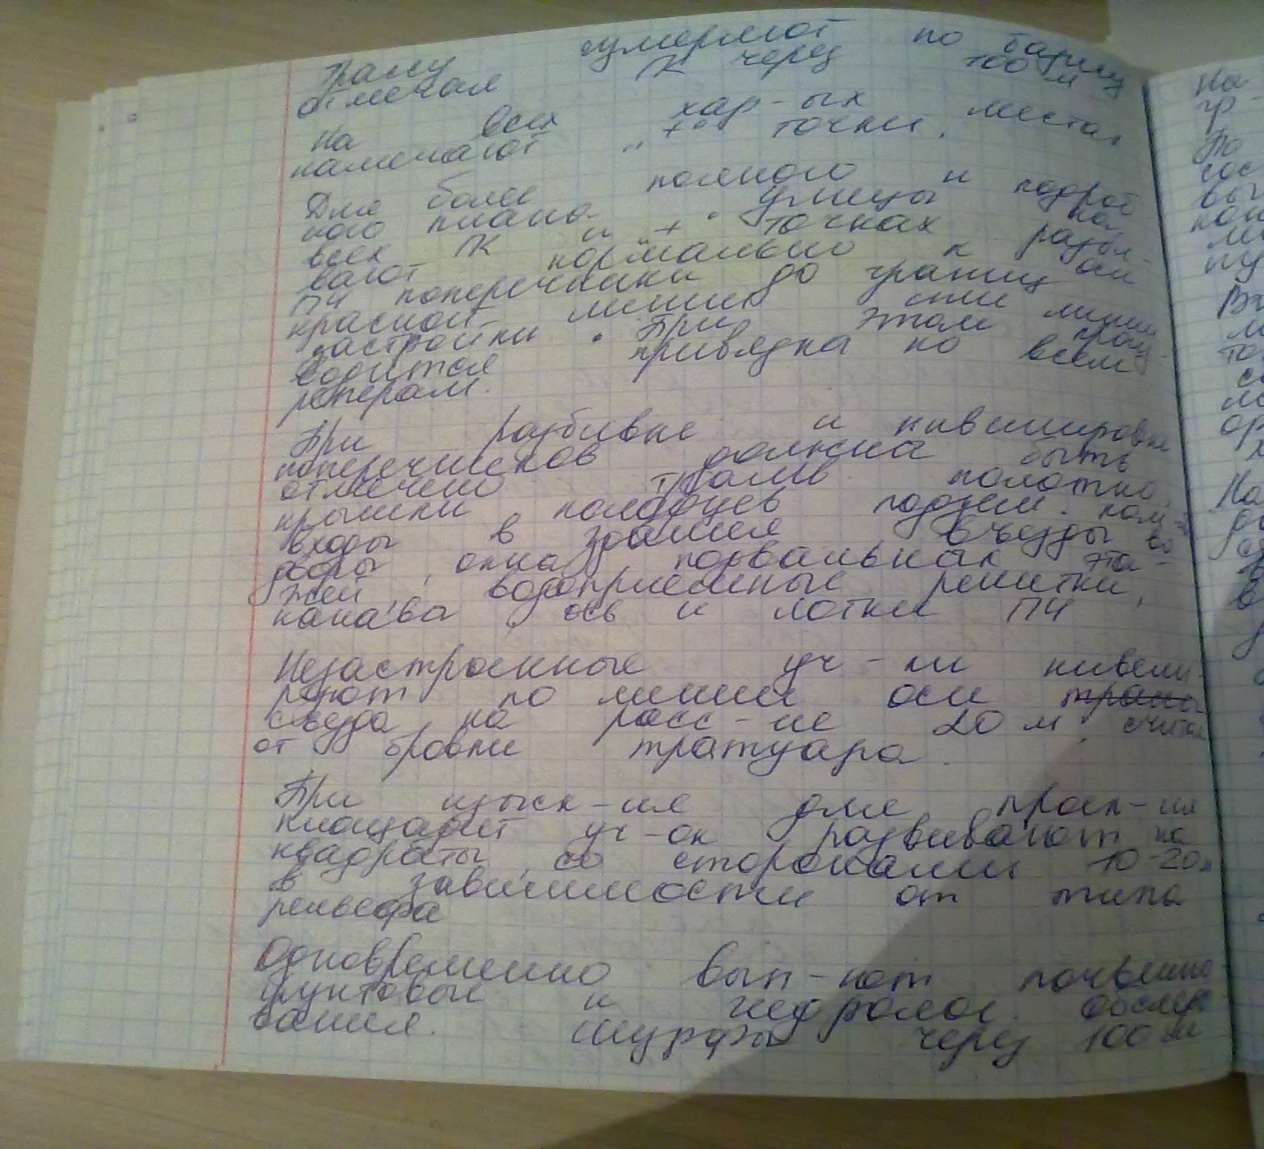 трассу измеряют по
отмечая ПК через 100 м
На всех хар-ых местах
намечают "+" точки.
Для более полного и подроб
ного плана улицы на
всех ПК и "+" точках разби-
вают нормально к оси
ПЧ поперечники до границ
красной линии или линии
застройки. При этом произ-
водится привязка ко всем
реперам.
При разбивке и нивелировке
поперечников должна быть
отмечено трамв полотно,
крышки колодцев подзем. ком-
входы в здания въезды во
дворы, окна подвальных эта-
жей, водоприемные решетки,
канава, ось и лотки ПЧ
Незастроенные уч-ки нивели-
руют по линии оси трассы
съезда на расс-ие 20 м, считая
от бровки тратуара.
При изыск-ие для проек-ия
площадей уч-ок развивают на
квадраты со сторонами 10-20м
в зависимости от типа
рельефа
Одновременно вып-ют почвенно
грунтовые и гидролог. обследо
вания. Шурфы через 100 м
На